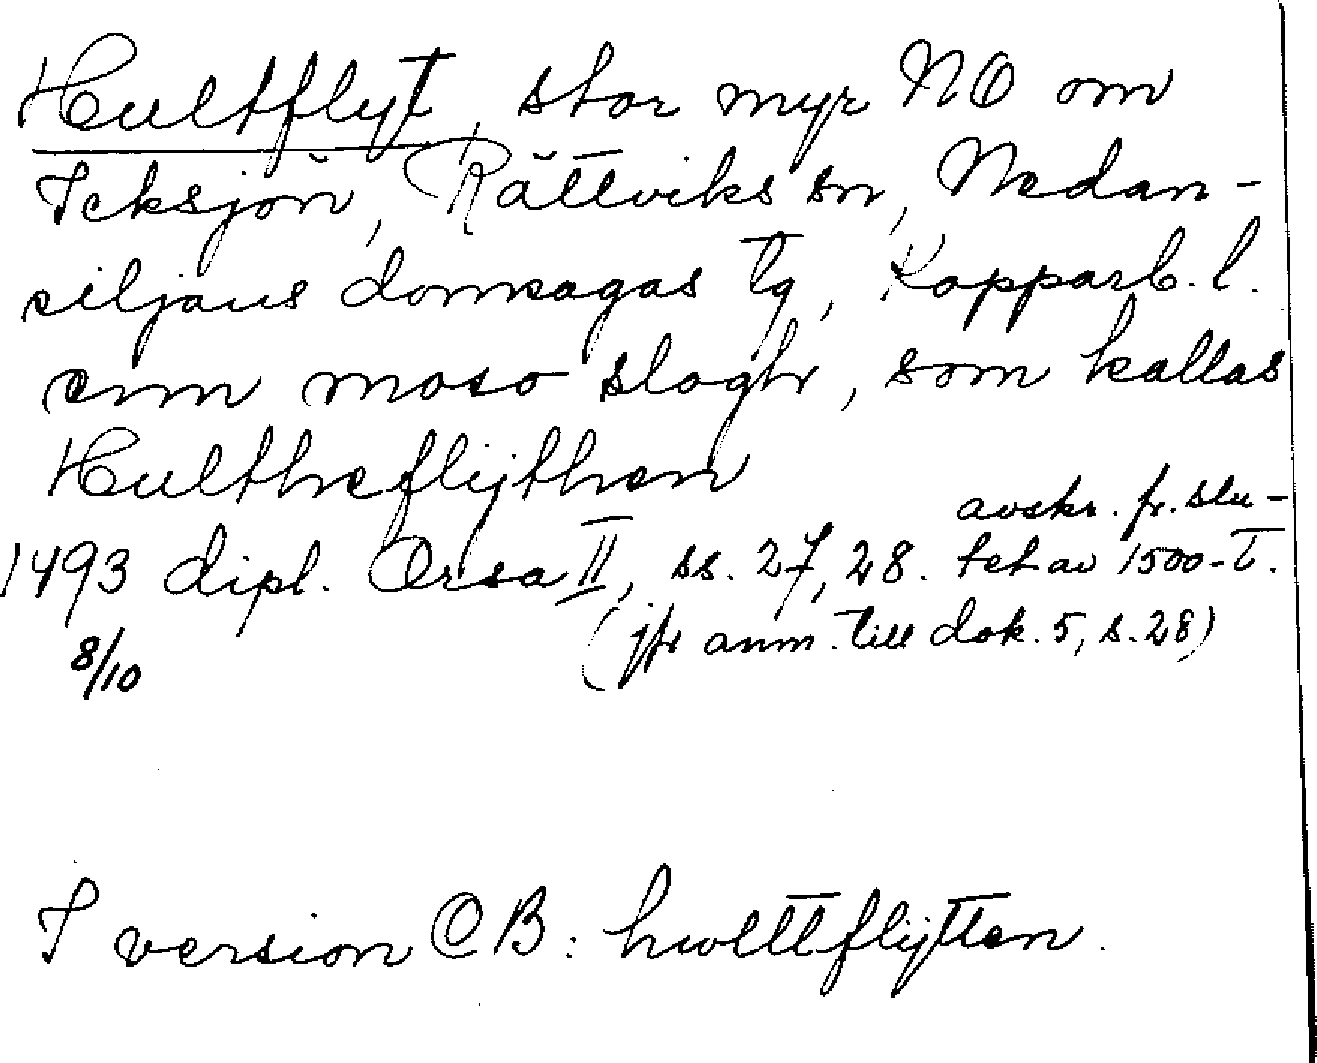 Hultflyt, stor myr NO om
Icksjön, Rättviks sn, Nedan-
siljans domsagas tg, Kopparb. l.
enn moso sloghr, som kallas
Hulthreflijthen
avskr. fr. slu-
1493 dipl. Orsa II, ss. 27, 28. tet av 1500-t.
8/10 (jfr anm. till dok. 5, s. 28)
I version CB: hwlttflijtten.